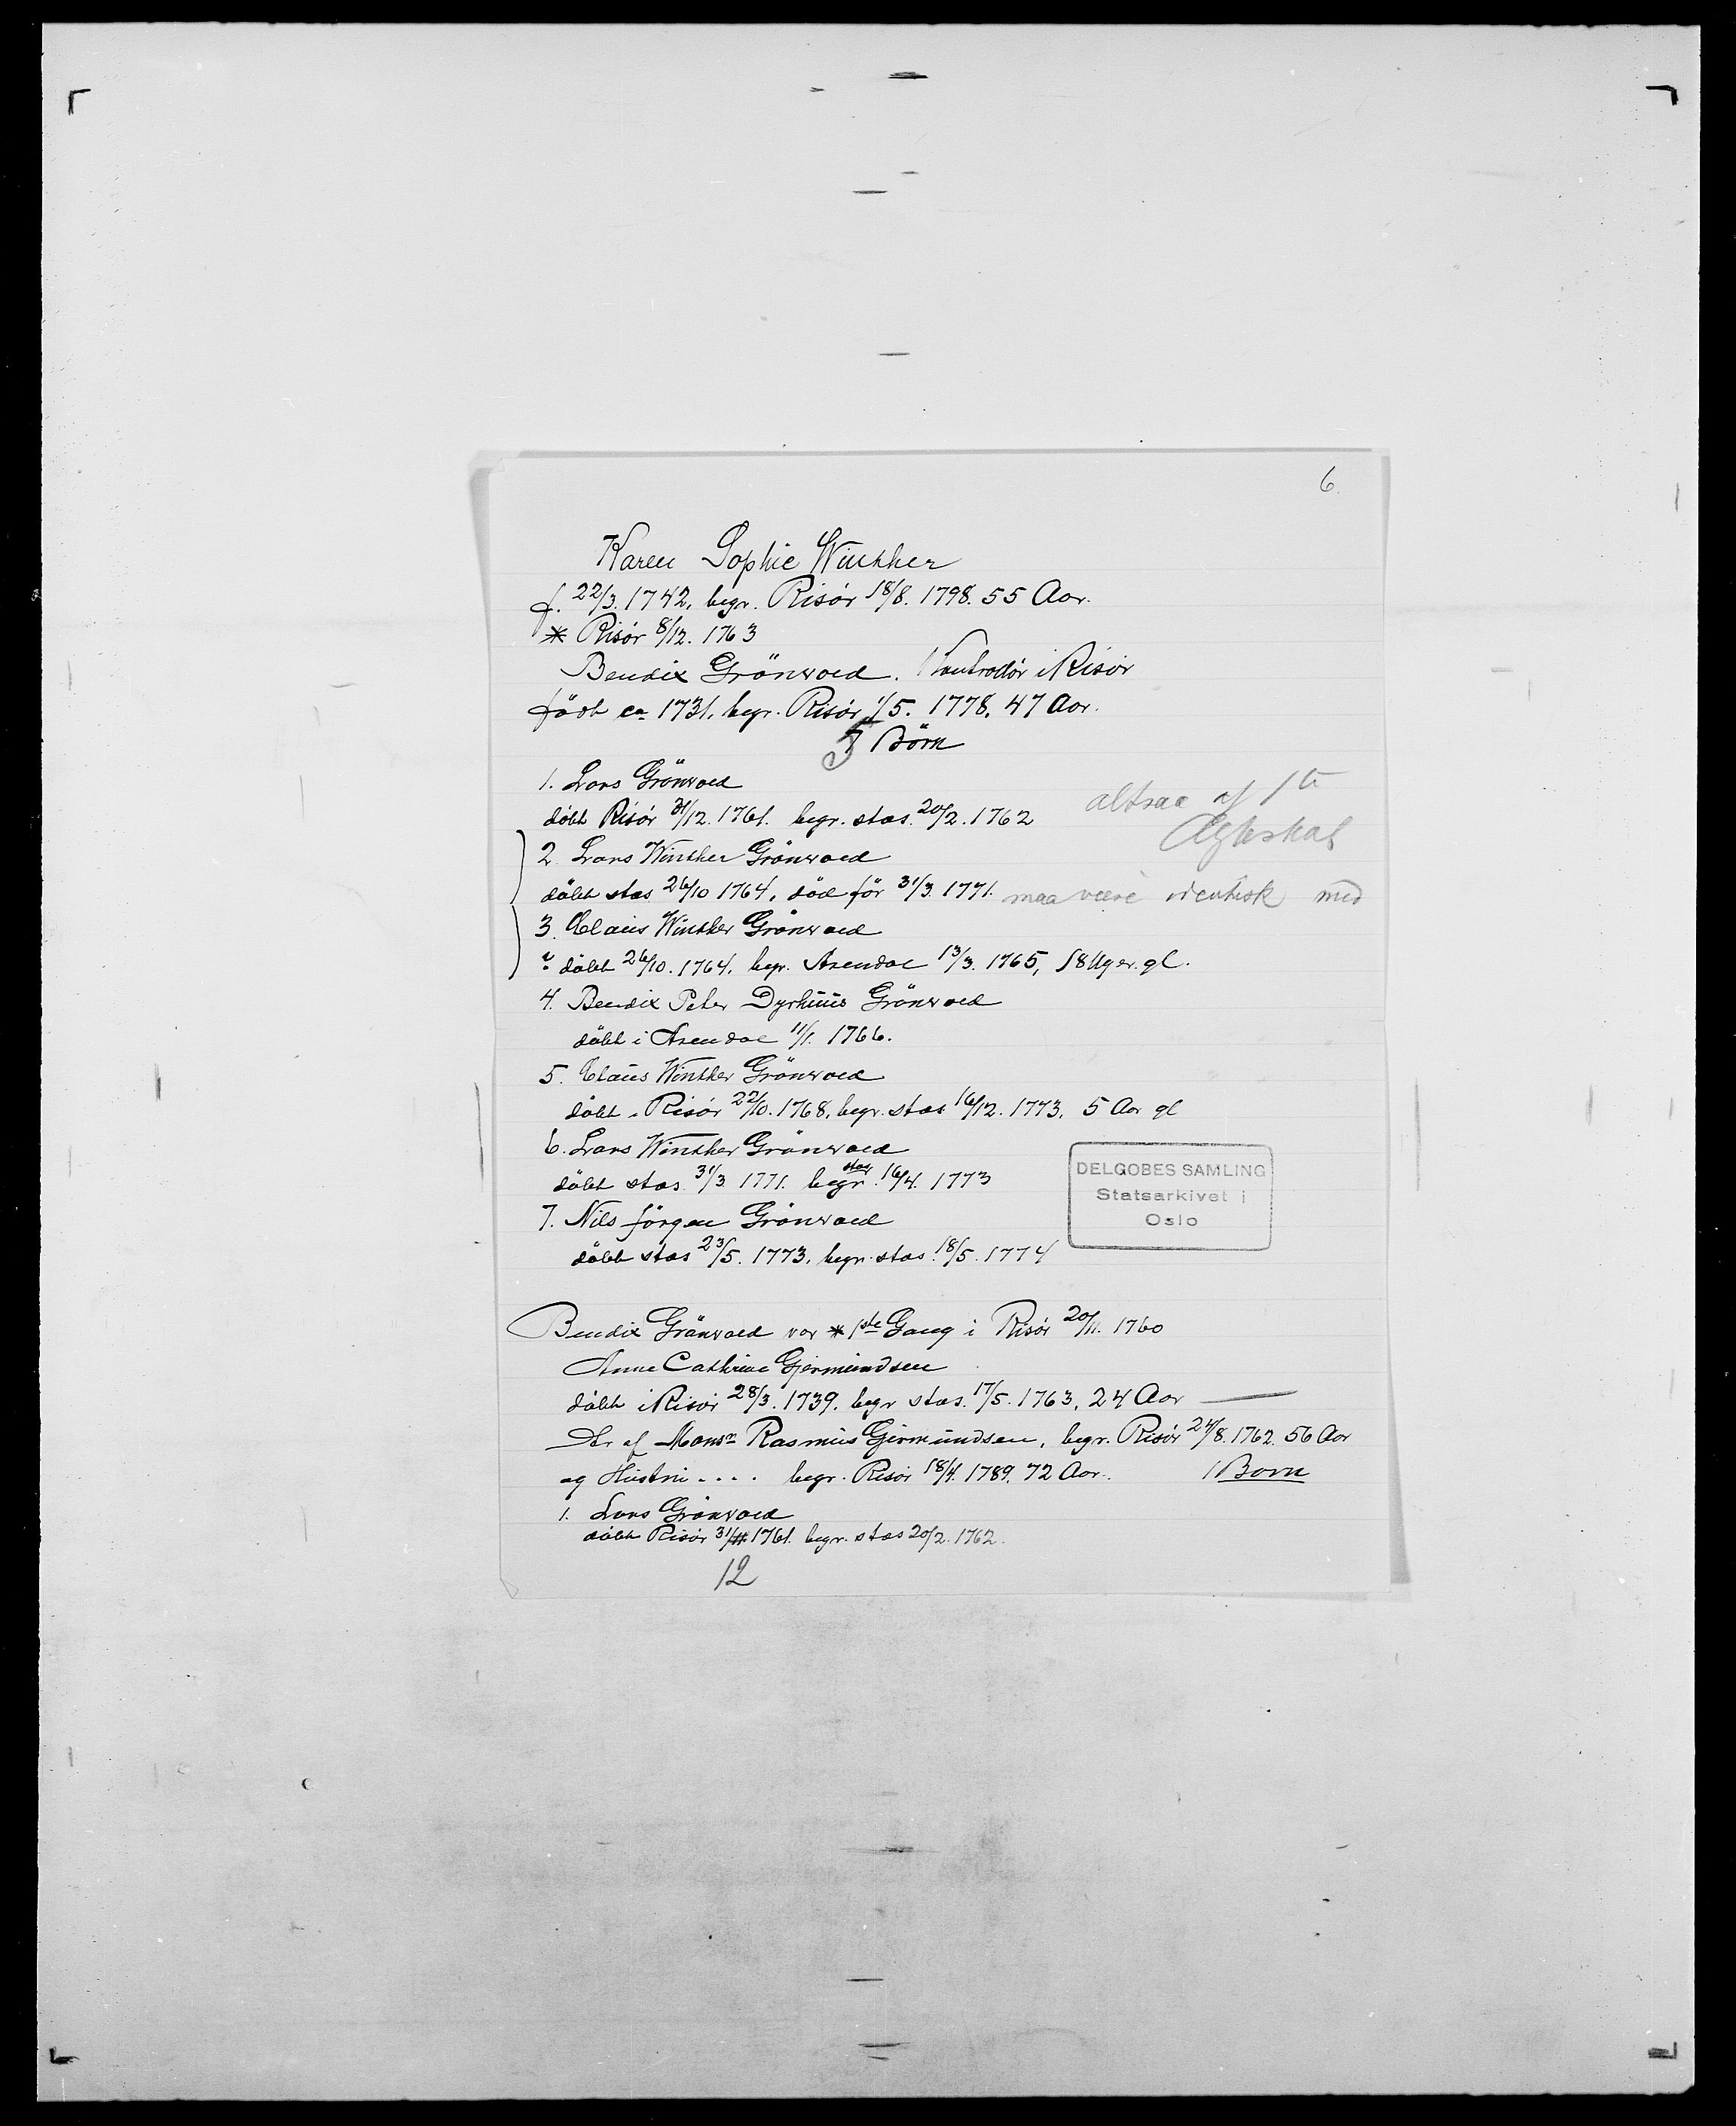 6.
Karen Sophie Winther
f. 22/3. 1742, begr. Risör 18/8. 1798. 55 Aar.
* Risör 8/12. 1763
Bendix Grönvold. Kontrolör i Risör
födt ca 1731, begr. Risör 1/5. 1778, 47 Aar.
5 Börn
1. Lars Grönvold
döbt Risör 31/12. 1761. begr. stds. 20/2. 1762
altsaa af 1te
Ægteskab
2. Lars Winther Grönvold
döbt stds 26/10 1764, död för 31/3. 1771. maa være identisk med
3. Claus Winther Grönvold
? döbt 26/10. 1764, begr. Arendal 13/3. 1765, 18 Uger gl.
4. Bendix Peter Dyrhuus Grönvold
döbt i Arendal 11/1. 1766.
5. Claus Winther Grönvold
döbt i Risör 22/10. 1768, begr. stds 16/12. 1773, 5 Aar gl
6. Lars Winther Grönvold
döbt stds. 31/3. 1771. begr. stds 16/4. 1773
7. Nils Jörgen Grönvold
döbt stds 23/5. 1773, begr. stds. 18/5. 1774
DELGOBES SAMLING
Statsarkivet i
Oslo
Bendix Grönvold var * 1ste Gang i Risör 20/11. 1760
Anne Cathrine Gjermundsen
döbt i Risör 28/3. 1739, begr stds. 17/5. 1763, 24 Aar
Dtr. af Monsr Rasmus Gjermundsen, begr. Risör 24/8. 1762. 56 Aar
og Hustru .... begr. Risör 18/4. 1789, 72 Aar. 1 Barn
1. Lars Grönvold
döbt Risör 31/ 1761. begr. stds 20/2. 1762.
12